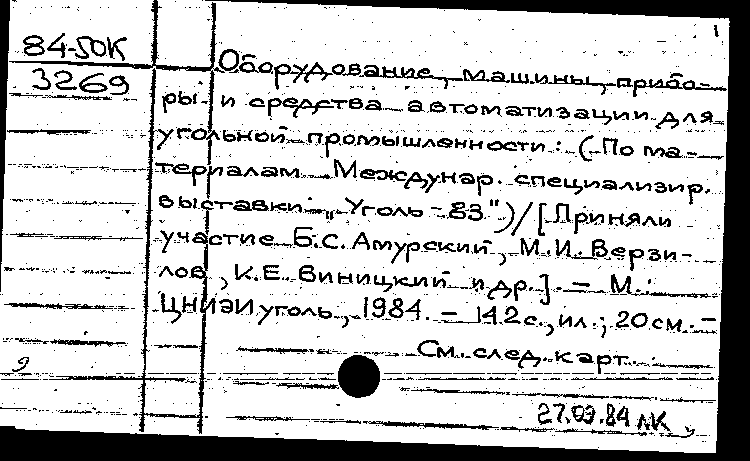 1
84-50К
3269
Оборудование, машины, прибо-
ры и средства автоматизации для
угольной промышленности: (По ма-
териалам Междунар. специализир.
выставки „Уголь-83")/[Приняли
участие Б.С. Амурский, М.И. Верзи-
лов, К.Е. Виницкий и др.]. - М.:
ЦНИЭИуголь, 1984. - 142с., ил.; 20см. -
См. след. карт.
9
27.09.84 ЛК